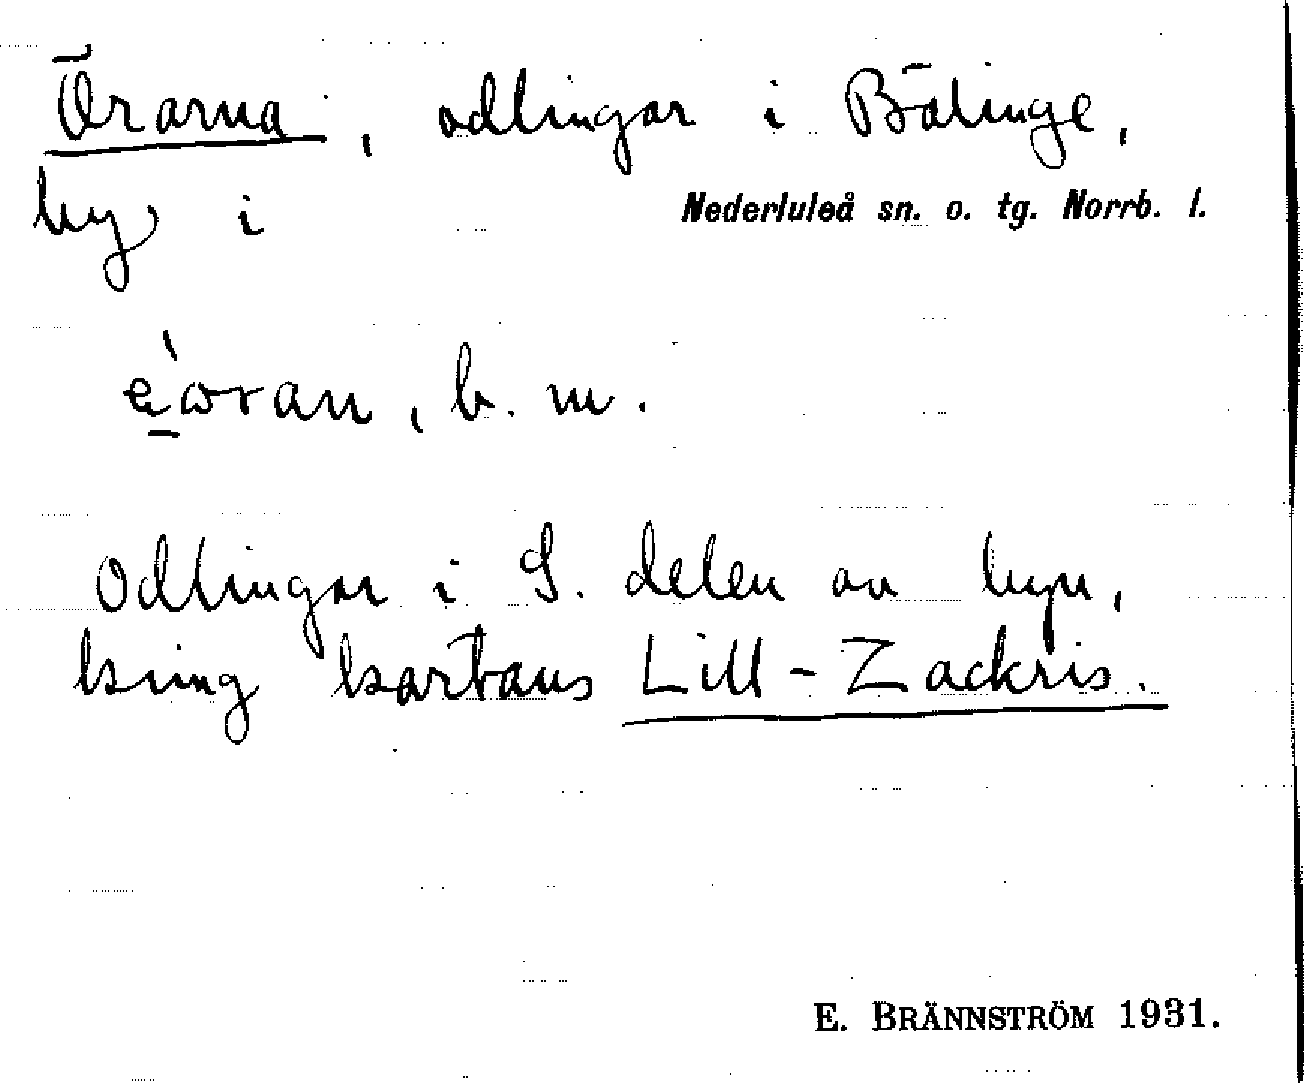 Örarna, odlingar i Bälinge,
by i Nederluleå sn. o. tg. Norrb. l.
b. m.
Odlingar i S. delen av byn,
kring kartans Lill-Zackris.
E. BRÄNNSTRÖM 1931.